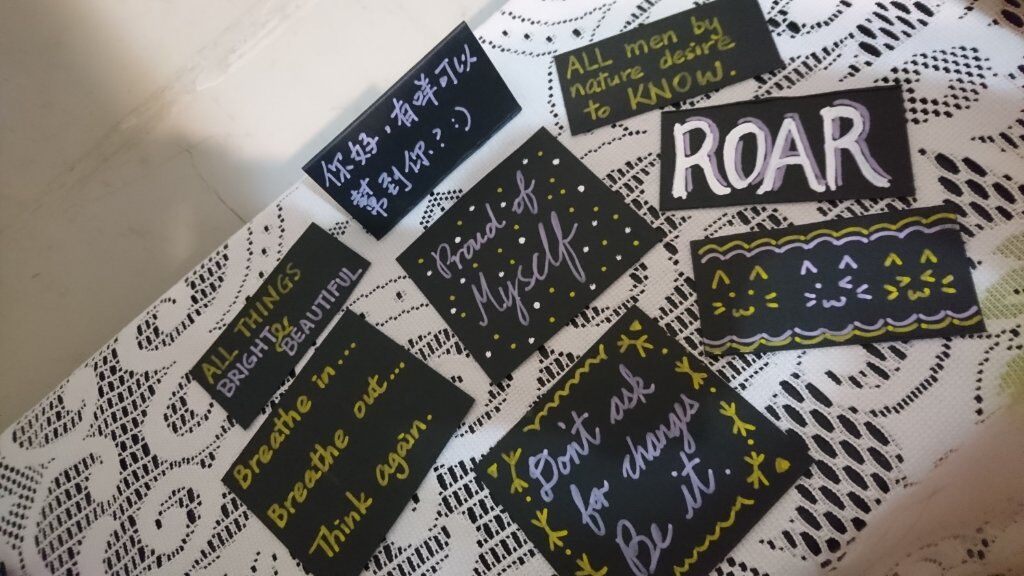 你好,有咩可以
幫到你?:)
ALL men by
nature desire
to KNOW.
ROAR
Proud of
Myself
ALL THINGS
BRIGHT &
BEAUTIFUL
Breathe in....
Breathe out...
Think again.
Don't ask
for changes
Be it.